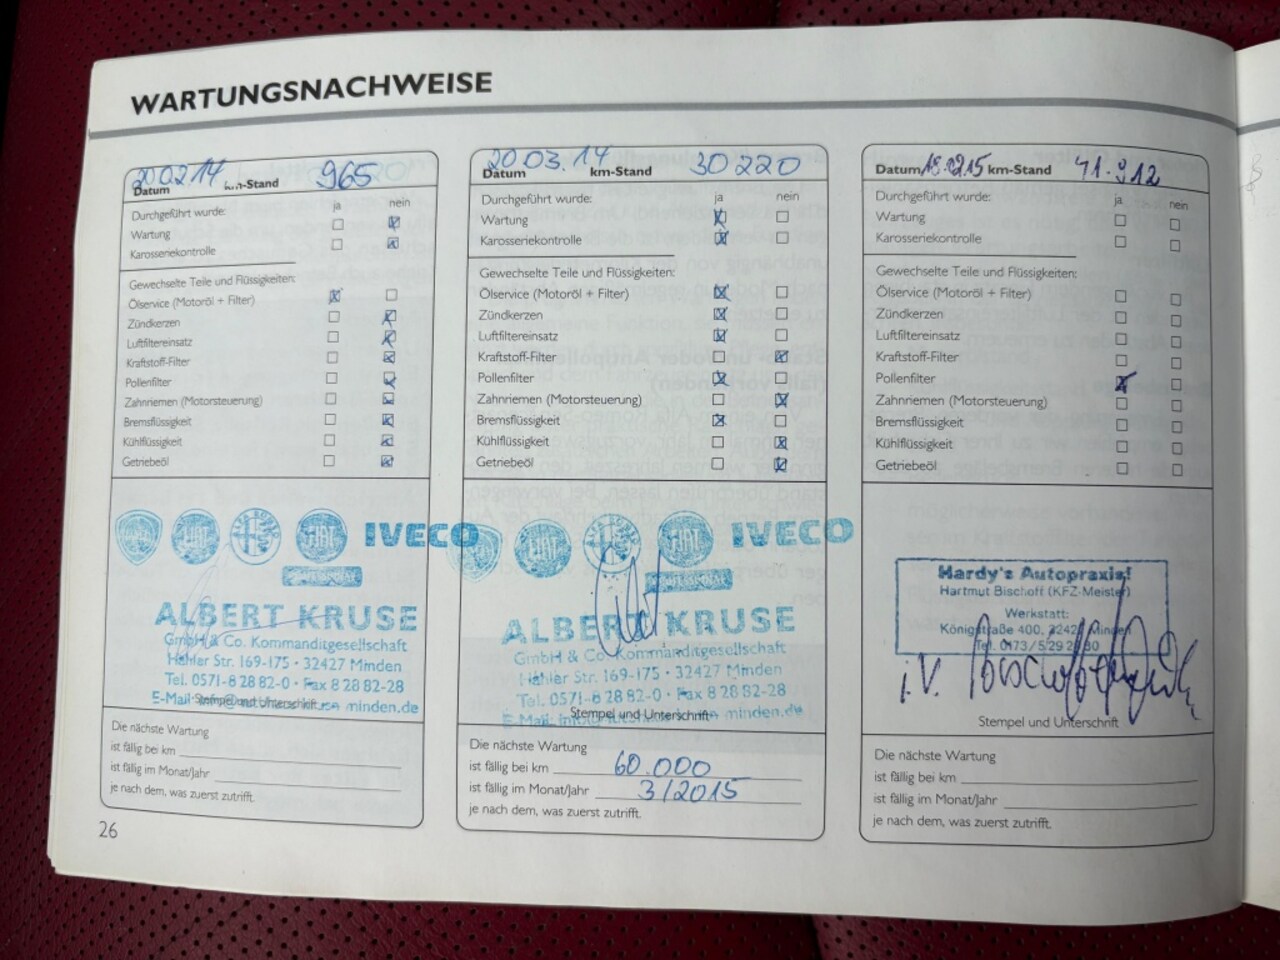 WARTUNGSNACHWEISE
20.02.14 965
Datum km-Stand
Durchgeführt wurde: ja nein
Wartung
Karosseriekontrolle
Gewechselte Teile und Flüssigkeiten:
Ölservice (Motoröl + Filter)
Zündkerzen
Luftfiltereinsatz
Kraftstoff-Filter
Pollenfilter
Zahnriemen (Motorsteuerung)
Bremsflüssigkeit
Kühlflüssigkeit
Getriebeöl
FIAT ALFA ROMEO FIAT IVECO
PROFESSIONAL
ALBERT KRUSE
GmbH & Co. Kommanditgesellschaft
Hahler Str. 169-175 · 32427 Minden
Tel. 0571-8 28 82-0 · Fax 8 28 82-28
E-Mail: minden.de
Stempel und Unterschrift
Die nächste Wartung
ist fällig bei km
ist fällig im Monat/Jahr
je nach dem, was zuerst zutrifft.
26
20.03.14 30220
Datum km-Stand
Durchgeführt wurde: ja nein
Wartung
Karosseriekontrolle
Gewechselte Teile und Flüssigkeiten:
Ölservice (Motoröl + Filter)
Zündkerzen
Luftfiltereinsatz
Kraftstoff-Filter
Pollenfilter
Zahnriemen (Motorsteuerung)
Bremsflüssigkeit
Kühlflüssigkeit
Getriebeöl
FIAT FIAT IVECO
PROFESSIONAL
ALBERT KRUSE
GmbH & Co. Kommanditgesellschaft
Hahler Str. 169-175 · 32427 Minden
Tel. 0571-8 28 82-0 · Fax 8 28 82-28
E-Mail: minden.de
Stempel und Unterschrift
Die nächste Wartung
ist fällig bei km 60.000
ist fällig im Monat/Jahr 3/2015
je nach dem, was zuerst zutrifft.
Datum km-Stand 41.912
Durchgeführt wurde: ja nein
Wartung
Karosseriekontrolle
Gewechselte Teile und Flüssigkeiten:
Ölservice (Motoröl + Filter)
Zündkerzen
Luftfiltereinsatz
Kraftstoff-Filter
Pollenfilter
Zahnriemen (Motorsteuerung)
Bremsflüssigkeit
Kühlflüssigkeit
Getriebeöl
Hardy's Autopraxis!
Hartmut Bischoff (KFZ-Meister)
Werkstatt:
Königstraße 400, Minden
Tel. 0173/5 29
i.V.
Stempel und Unterschrift
Die nächste Wartung
ist fällig bei km
ist fällig im Monat/Jahr
je nach dem, was zuerst zutrifft.